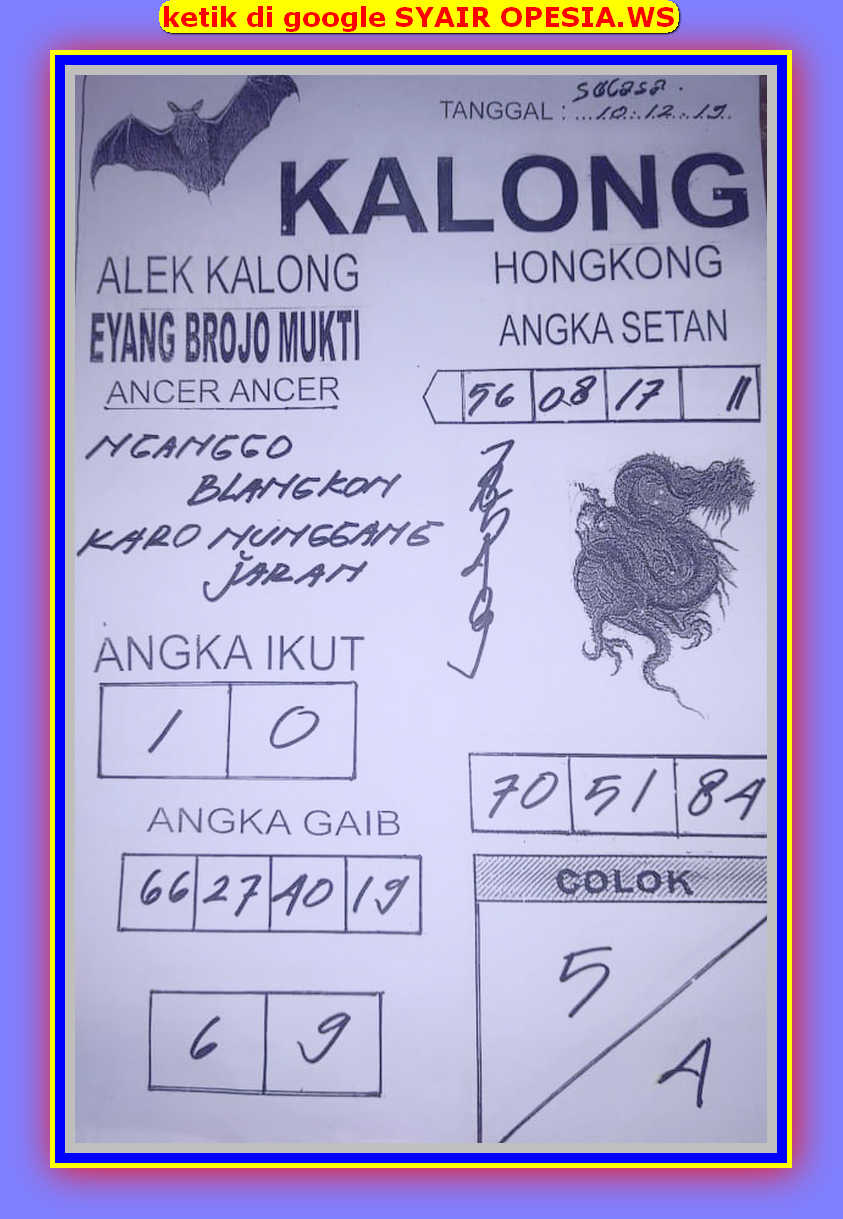 ketik di google SYAIR OPESIA.WS
Selasa.
TANGGAL : ...10...12...19..
KALONG
ALEK KALONG
HONGKONG
EYANG BROJO MUKTI
ANGKA SETAN
ANCER ANCER
56 08 17 11
NGANGGO
BLANGKON
KARO NUNGGANG
JARAN
7
5
4
9
ANGKA IKUT
1 0
70 51 84
ANGKA GAIB
66 27 40 19
COLOK
5
4
6 9